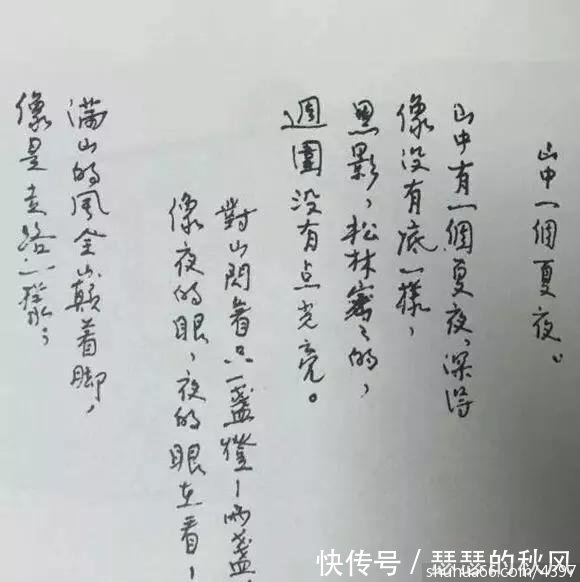 山中一個夏夜。
山中有一個夏夜，深得
像没有底一樣，
黑影，松林密々的，
週圍没有点光亮。
對山閃着只一盞燈－兩盞，
像夜的眼，夜的眼在看，
满山的風全着脚，
像是走路一樣，
快传号／瑟瑟的秋风